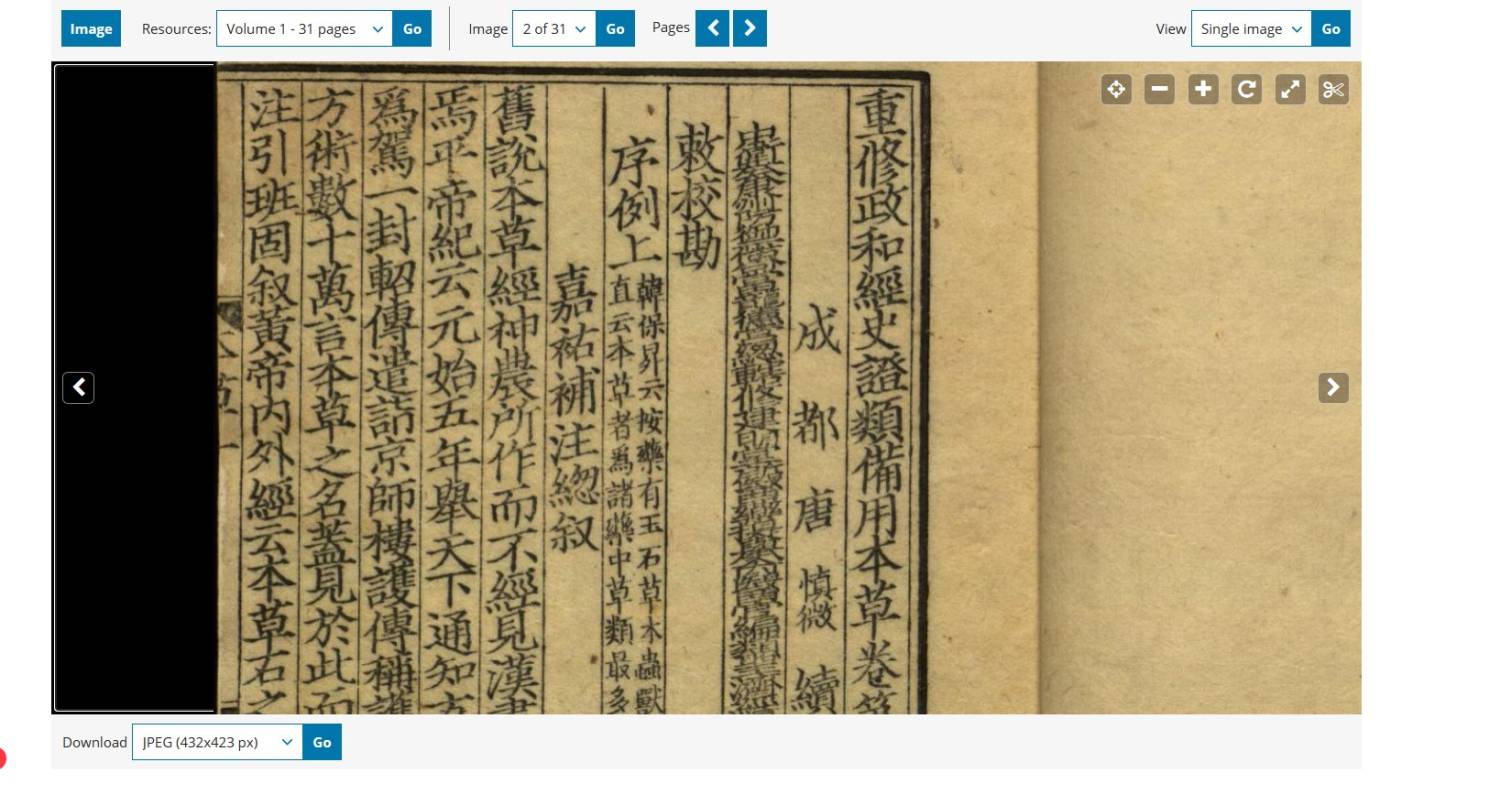 Image
Resources:
Volume 1 - 31 pages
Go
Image
2 of 31
Go
Pages
View
Single image
Go
重修政和經史證類備用本草卷
成都唐慎微續
敕校勘
序例上
韓保昇云按藥有玉石草木蟲獸
直云本草者爲諸藥中草類最多
嘉祐補注緫叙
舊說本草經神農所作而不經見漢書
焉平帝紀云元始五年舉天下通知方
爲駕一封軺傳遣詣京師樓護傳稱護
方術數十萬言本草之名蓋見於此而
注引班固叙黃帝内外經云本草石之
Download
JPEG (432x423 px)
Go